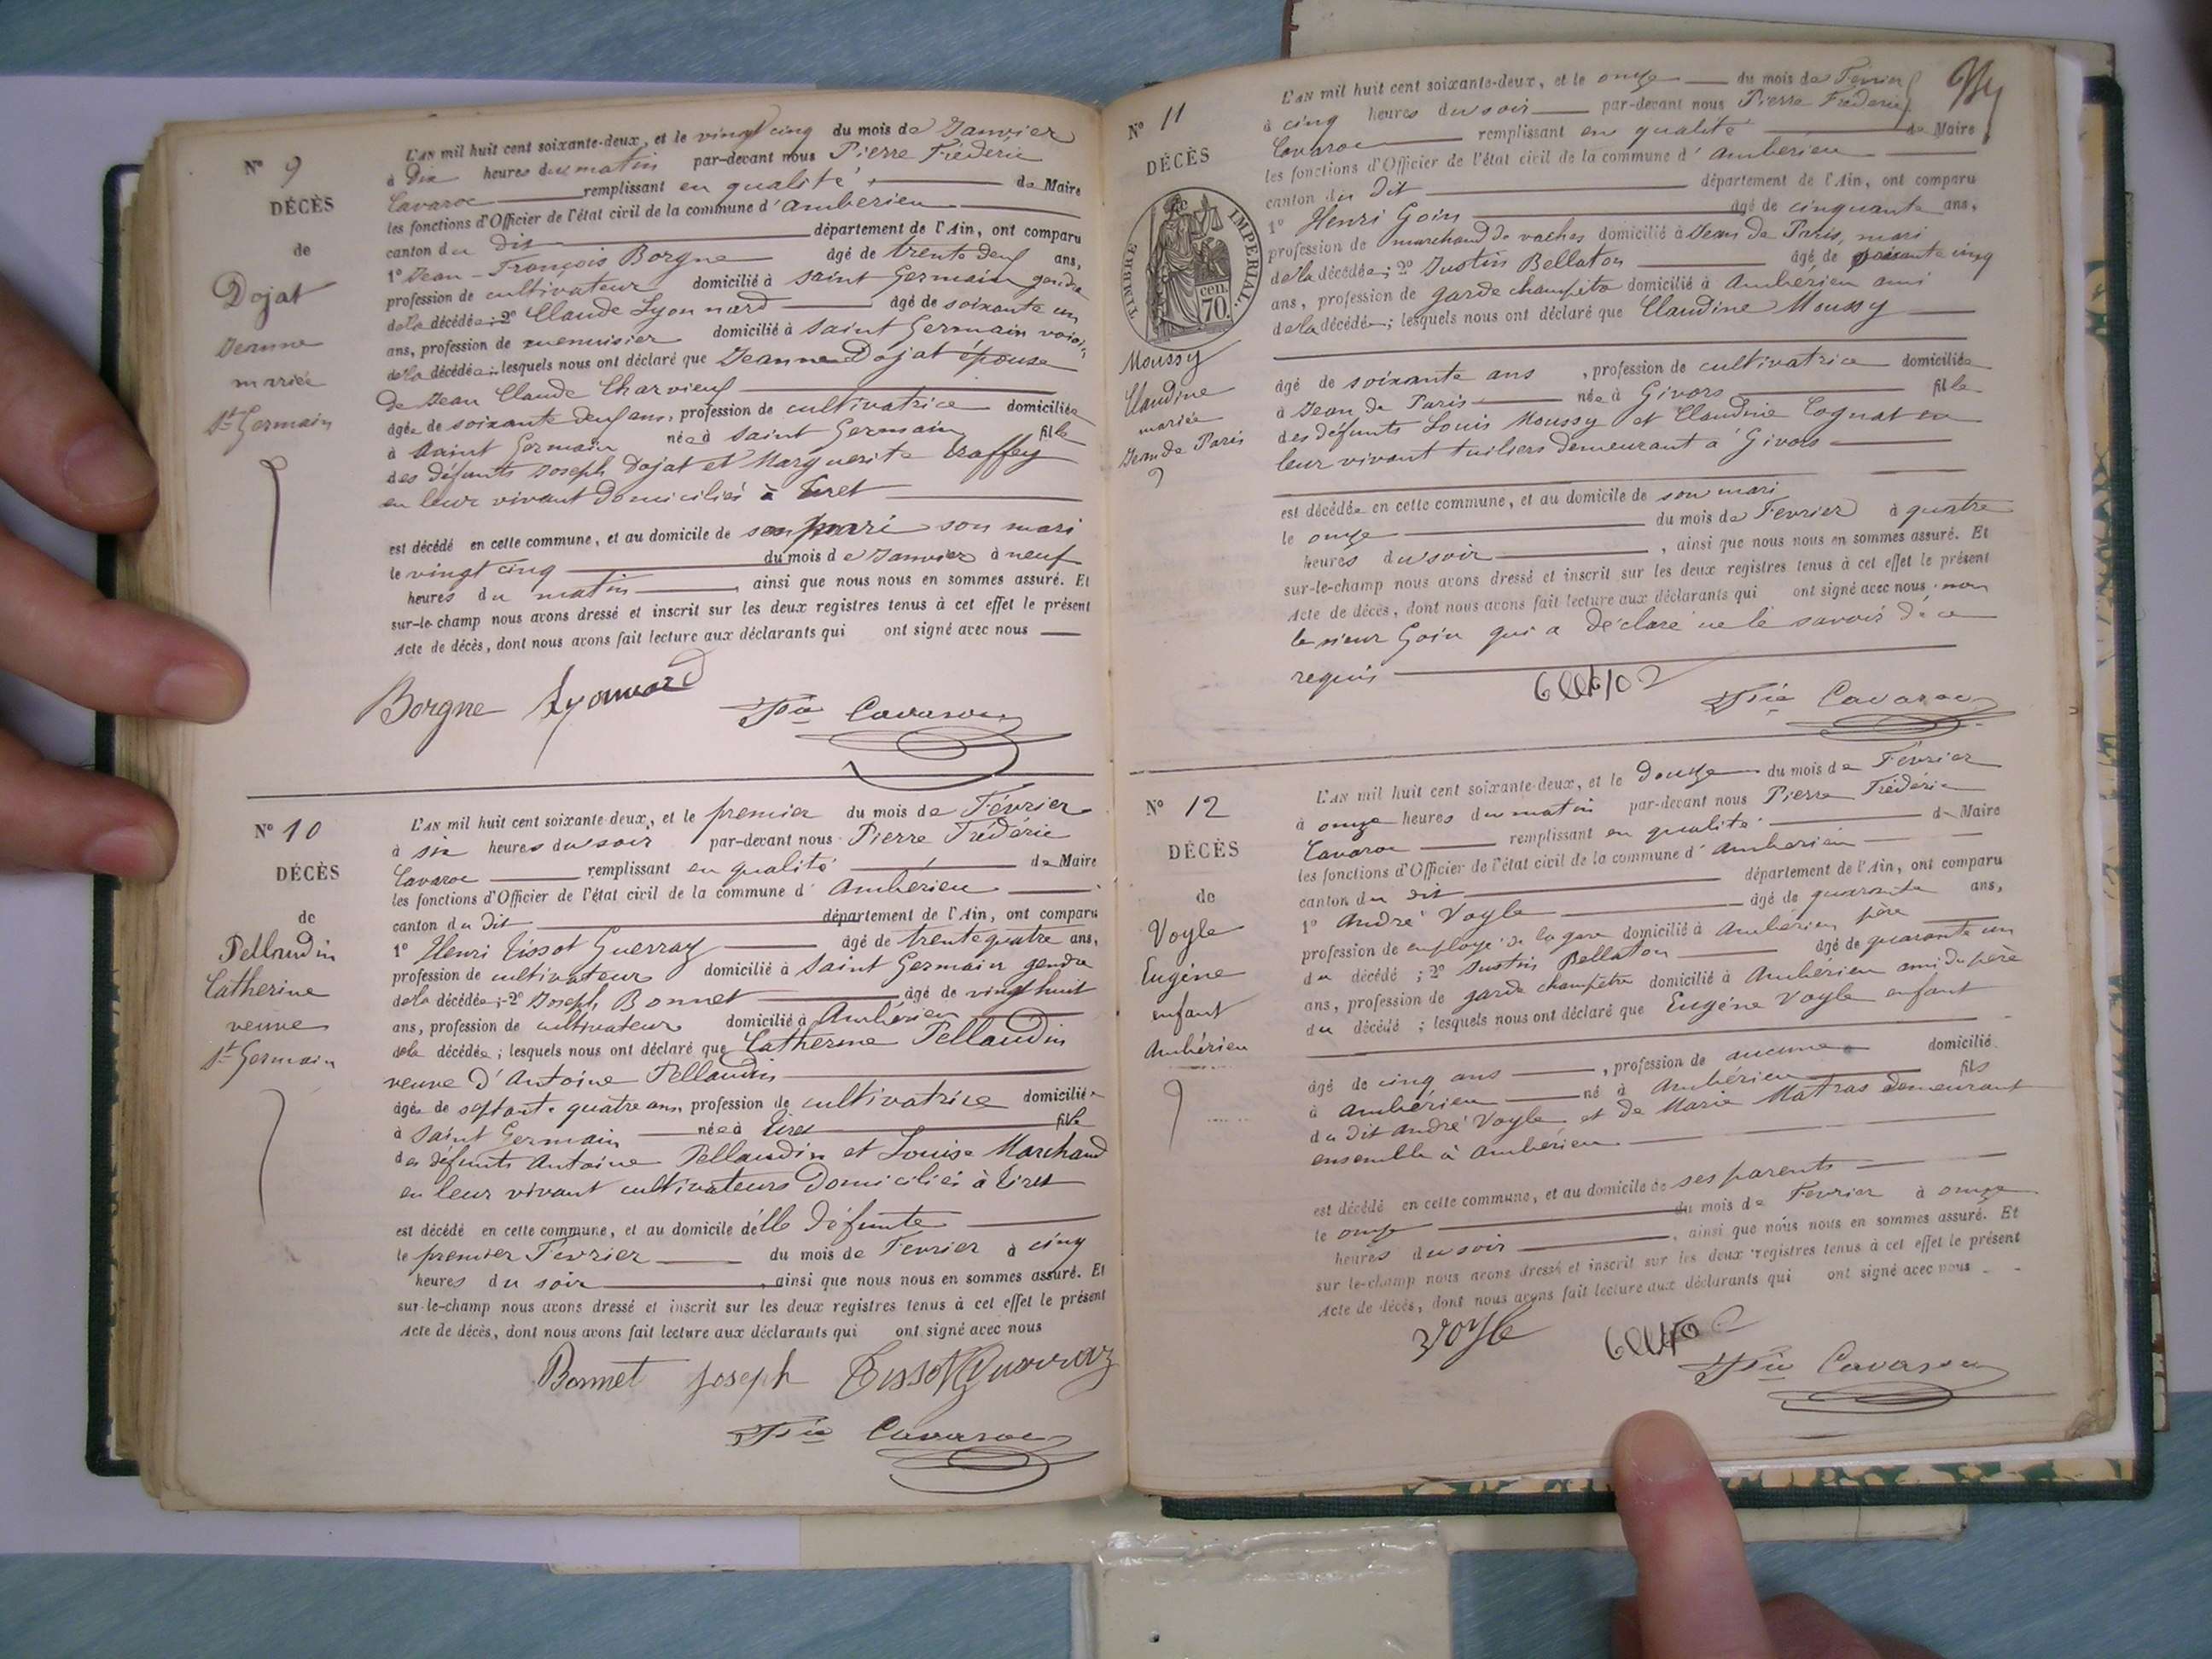 N° 9
DÉCÈS
de
Dojat
Jeanne
mariée
St Germain
L'AN mil huit cent soixante-deux, et le vingt cinq du mois de Janvier
à Dix heures du matin par-devant nous Pierre Fréderic
Cavaroc remplissant en qualité de Maire
les fonctions d'Officier de l'état civil de la commune d'Ambérieu
canton du dit département de l'Ain, ont comparu
1° Jean-François Borgne âgé de trente deux ans,
profession de cultivateur domicilié à Saint Germain gendre
de la décédée; 2° Claude Lyonnard âgé de soixante un
ans, profession de menuisier domicilié à Saint Germain voisin
de la décédée; lesquels nous ont déclaré que Jeanne Dojat épouse
de Jean Claude Charvieux
âgée de soixante deux ans, profession de cultivatrice domiciliée
à Saint Germain née à Saint Germain fille
des défunts Joseph Dojat et Marguerite
en leur vivant domiciliés à Tiret
est décédé en cette commune, et au domicile de son mari son mari
le vingt cinq du mois de Janvier à neuf
heures du matin, ainsi que nous nous en sommes assuré. Et
sur-le-champ nous avons dressé et inscrit sur les deux registres tenus à cet effet le présent
Acte de décès, dont nous avons fait lecture aux déclarants qui ont signé avec nous
Borgne Lyonnard
Fic Cavaroc
N° 10
DÉCÈS
de
Pellaudin
Catherine
veuve
St Germain
L'AN mil huit cent soixante-deux, et le premier du mois de Février
à six heures du soir par-devant nous Pierre Frédéric
Cavaroc remplissant en qualité de Maire
les fonctions d'Officier de l'état civil de la commune d'Ambérieu
canton du dit département de l'Ain, ont comparu
1° Henri Tissot Guerraz âgé de trente quatre ans,
profession de cultivateur domicilié à Saint Germain gendre
de la décédée; 2° Joseph Bonnet âgé de vingt huit
ans, profession de cultivateur domicilié à Ambérieu
de la décédée; lesquels nous ont déclaré que Catherine Pellaudin
veuve d'Antoine Pellaudin
âgée de septante quatre ans, profession de cultivatrice domiciliée
à Saint Germain née à Tiret fille
des défunts Antoine Pellaudin et Louise Marchand
en leur vivant cultivateurs domiciliés à Tiret
est décédé en cette commune, et au domicile de lle défunte
le premier Fevrier du mois de Fevrier à cinq
heures du soir, ainsi que nous nous en sommes assuré. Et
sur-le-champ nous avons dressé et inscrit sur les deux registres tenus à cet effet le présent
Acte de décès, dont nous avons fait lecture aux déclarants qui ont signé avec nous
Bonnet joseph Tissot Guerraz
Fic Cavaroc
N° 11
DÉCÈS
TIMBRE IMPERIAL.
70 cen.
Moussy
Claudine
mariée
Jean de Paris
L'AN mil huit cent soixante-deux, et le onze du mois de Fevrier
à cinq heures du soir par-devant nous Pierre Fréderic
Cavaroc remplissant en qualité de Maire
les fonctions d'Officier de l'état civil de la commune d'Ambérieu
canton du dit département de l'Ain, ont comparu
1° Henri Goin âgé de cinquante ans,
profession de marchand de vaches domicilié à Jean de Paris, mari
de la décédée; 2° Justin Bellaton âgé de cinq
ans, profession de garde champêtre domicilié à Ambérieu ami
de la décédée; lesquels nous ont déclaré que Claudine Moussy
âgé de soixante ans, profession de cultivatrice domiciliée
à Jean de Paris née à Givors fille
des défunts Louis Moussy et Claudine Cognat en
leur vivant tuiliers demeurant à Givors
est décédée en cette commune, et au domicile de son mari
le onze du mois de Fevrier à quatre
heures du soir, ainsi que nous nous en sommes assuré. Et
sur-le-champ nous avons dressé et inscrit sur les deux registres tenus à cet effet le présent
Acte de décès, dont nous avons fait lecture aux déclarants qui ont signé avec nous non
le sieur Goin qui a déclaré ne le savoir de ce
requis
Fic Cavaroc
N° 12
DÉCÈS
de
Voyle
Eugéne
enfant
Ambérieu
L'AN mil huit cent soixante-deux, et le douze du mois de Février
à onze heures du matin par-devant nous Pierre Frédéric
Cavaroc remplissant en qualité de Maire
les fonctions d'Officier de l'état civil de la commune d'Ambérieu
canton du dit département de l'Ain, ont comparu
1° André Voyle âgé de quarante ans,
profession de employé de la gare domicilié à Ambérieu père
du décédé; 2° Justin Bellaton âgé de quarante un
ans, profession de garde champêtre domicilié à Ambérieu ami du père
du décédé; lesquels nous ont déclaré que Eugéne Voyle enfant
âgé de cinq ans, profession de aucune domicilié
à Ambérieu né à Ambérieu fils
du dit André Voyle et de Marie Matras demeurant
ensemble à Ambérieu
est décédé en cette commune, et au domicile de ses parents
le onze du mois de Fevrier à onze
heures du soir, ainsi que nous nous en sommes assuré. Et
sur-le-champ nous avons dressé et inscrit sur les deux registres tenus à cet effet le présent
Acte de décès, dont nous avons fait lecture aux déclarants qui ont signé avec nous
voyle
Fic Cavaroc